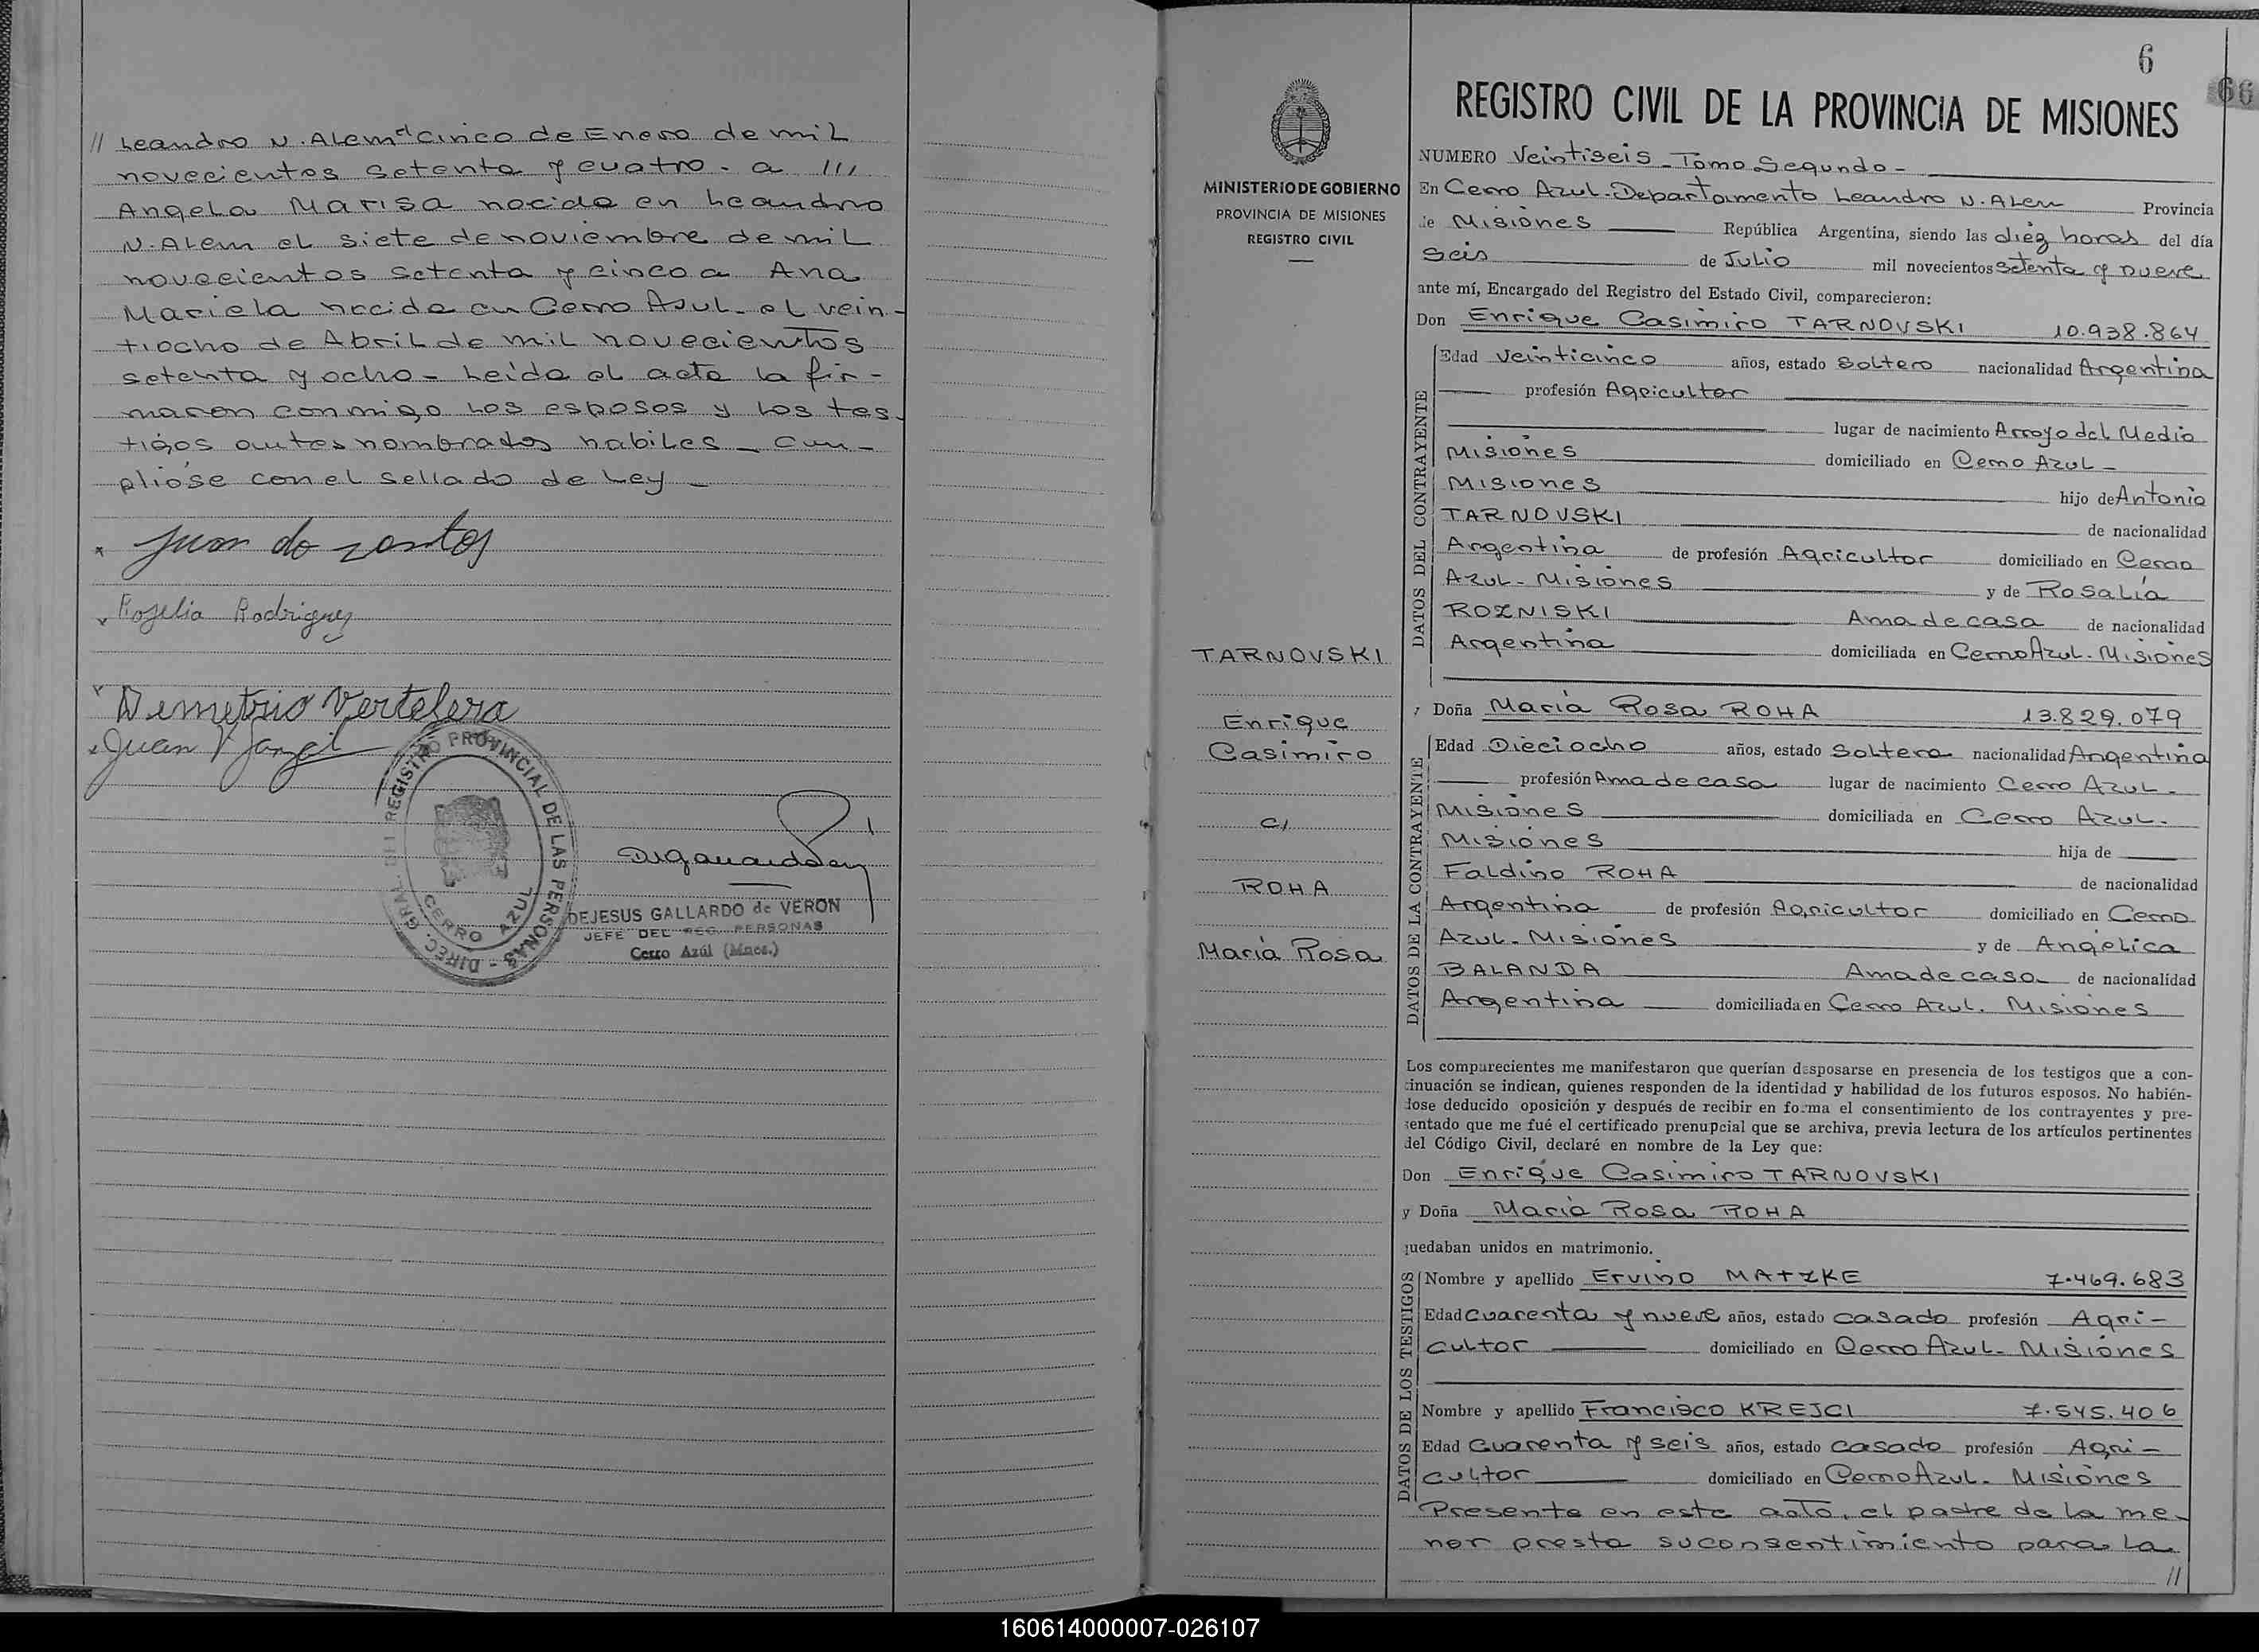 // Leandro N. Alem el cinco de Enero de mil
novecientos setenta y cuatro - a ///
Angela Marisa nacida en Leandro
N. Alem el siete de noviembre de mil
novecientos setenta y cinco a Ana
Mariela nacida en Cerro Azul - el vein-
tiocho de Abril de mil novecientos
setenta y ocho - Leida el acta la fir-
maron conmigo los esposos y los tes-
tigos antes nombrados habiles - Cum-
pliose con el sellado de Ley -
Juan do santos
Rogelia Rodriguez
Demetrio Vertelera
Juan
DIREC. GRAL. DEL REGISTRO PROVINCIAL DE LAS PERSONAS -
CERRO AZUL
DEJESUS GALLARDO de VERON
JEFE DEL REG. PERSONAS
Cerro Azúl (Mnes.)
MINISTERIO DE GOBIERNO
PROVINCIA DE MISIONES
REGISTRO CIVIL
TARNOVSKI
Enrique
Casimiro
C/
ROHA
María Rosa
6
66
REGISTRO CIVIL DE LA PROVINCIA DE MISIONES
NUMERO Veintiseis - Tomo Segundo -
En Cerro Azul - Departamento Leandro N. Alem Provincia
de Misiones República Argentina, siendo las diéz horas del día
Seis de Julio mil novecientos Setenta y nueve
ante mí, Encargado del Registro del Estado Civil, comparecieron:
Don Enrique Casimiro TARNOVSKI 10.938.864
DATOS DEL CONTRAYENTE
Edad veinticinco años, estado Soltero nacionalidad Argentina
profesión Agricultor
lugar de nacimiento Arroyo del Medio
Misiones domiciliado en Cerro Azul -
Misiones hijo de Antonio
TARNOVSKI de nacionalidad
Argentina de profesión Agricultor domiciliado en Cerro
Azul - Misiones y de Rosalía
ROZNISKI Ama de casa de nacionalidad
Argentina domiciliada en Cerro Azul - Misiones
y Doña María Rosa ROHA 13.829.079
DATOS DE LA CONTRAYENTE
Edad Dieciocho años, estado Soltera nacionalidad Argentina
profesión Ama de casa lugar de nacimiento Cerro Azul -
Misiones domiciliada en Cerro Azul -
Misiones hija de
Faldino ROHA de nacionalidad
Argentina de profesión Agricultor domiciliado en Cerro
Azul - Misiones y de Angélica
BALANDA Ama de casa de nacionalidad
Argentina domiciliada en Cerro Azul. Misiones
Los comparecientes me manifestaron que querían desposarse en presencia de los testigos que a con-
tinuación se indican, quienes responden de la identidad y habilidad de los futuros esposos. No habién-
dose deducido oposición y después de recibir en forma el consentimiento de los contrayentes y pre-
sentado que me fué el certificado prenupcial que se archiva, previa lectura de los artículos pertinentes
del Código Civil, declaré en nombre de la Ley que:
Don Enrique Casimiro TARNOVSKI
y Doña María Rosa ROHA
quedaban unidos en matrimonio.
DATOS DE LOS TESTIGOS
Nombre y apellido Ervino MATZKE 7.469.683
Edad Cuarenta y nueve años, estado casado profesión Agri-
cultor domiciliado en Cerro Azul - Misiones
Nombre y apellido Francisco KREJCI 7.545.406
Edad Cuarenta y seis años, estado casado profesión Agri-
cultor domiciliado en Cerro Azul - Misiones
Presente en este acto, el padre de la me-
nor presta su consentimiento para la
//
160614000007-026107